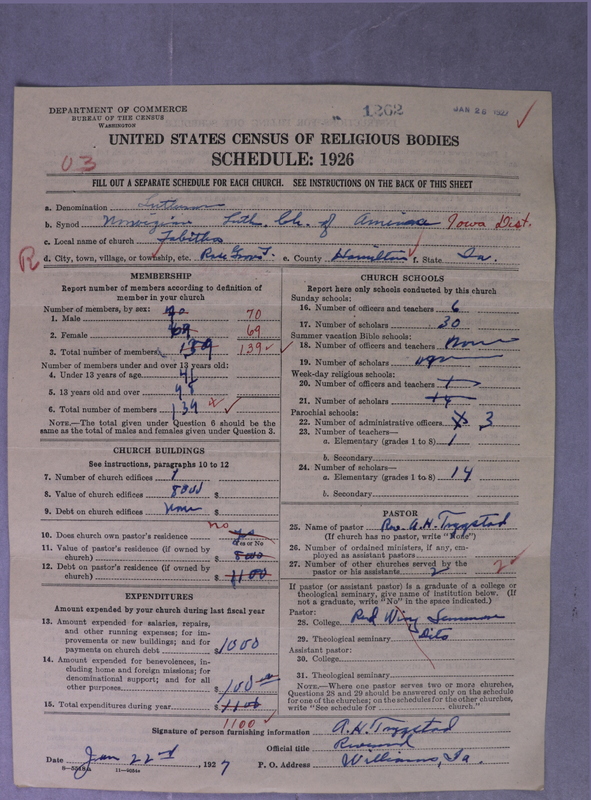 DEPARTMENT OF COMMERCE
BUREAU OF THE CENSUS
WASHINGTON
1262
JAN 26 1927
UNITED STATES CENSUS OF RELIGIOUS BODIES
SCHEDULE: 1926
03
FILL OUT A SEPARATE SCHEDULE FOR EACH CHURCH. SEE INSTRUCTIONS ON THE BACK OF THIS SHEET
a. Denomination Lutheran
b. Synod Norwigian Luth. Ch. of America Iowa Dist.
c. Local name of church Tabitha
R
d. City, town, village, or township, etc. Rose Grove T. e. County Hamilton f. State Ia.
MEMBERSHIP
Report number of members according to definition of
member in your church
Number of members, by sex:
1. Male 70 70
2. Female 69 69
3. Total number of members 139 139
Number of members under and over 13 years old:
4. Under 13 years of age
5. 13 years old and over
6. Total number of members 139
NOTE.—The total given under Question 6 should be the
same as the total of males and females given under Question 3.
CHURCH BUILDINGS
See instructions, paragraphs 10 to 12
7. Number of church edifices 1
8. Value of church edifices 8000 $
9. Debt on church edifices None $
no
10. Does church own pastor's residence yes
Yes or No
11. Value of pastor's residence (if owned by
church) $ 5000
12. Debt on pastor's residence (if owned by
church) $ 1100
EXPENDITURES
Amount expended by your church during last fiscal year
13. Amount expended for salaries, repairs,
and other running expenses; for im-
provements or new buildings; and for
payments on church debt $ 1000
14. Amount expended for benevolences, in-
cluding home and foreign missions; for
denominational support; and for all
other purposes $ 100
15. Total expenditures during year $ 1100
1100
CHURCH SCHOOLS
Report here only schools conducted by this church
Sunday schools:
16. Number of officers and teachers 6
17. Number of scholars 30
Summer vacation Bible schools:
18. Number of officers and teachers None
19. Number of scholars
Week-day religious schools:
20. Number of officers and teachers 1
21. Number of scholars 14
Parochial schools:
22. Number of administrative officers 3
23. Number of teachers—
a. Elementary (grades 1 to 8) 1
b. Secondary
24. Number of scholars—
a. Elementary (grades 1 to 8) 14
b. Secondary
PASTOR
25. Name of pastor Rev. A. H. Tryggstad
(If church has no pastor, write "None")
26. Number of ordained ministers, if any, em-
ployed as assistant pastors
27. Number of other churches served by the
pastor or his assistants 2 2
If pastor (or assistant pastor) is a graduate of a college or
theological seminary, give name of institution below. (If
not a graduate, write "No" in the space indicated.)
Pastor:
28. College Red Wing Seminary
29. Theological seminary Dito
Assistant pastor:
30. College
31. Theological seminary
NOTE.—Where one pastor serves two or more churches,
Questions 28 and 29 should be answered only on the schedule
for one of the churches; on the schedules for the other churches,
write "See schedule for church."
Signature of person furnishing information A. H. Tryggstad
Official title Reverend
Date Jan 22d, 1927 P. O. Address Williams, Ia.
8—5518a 11—9054a